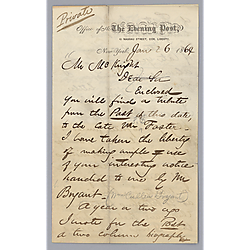 Private
Office of The Evening Post,
41 Nassau Street, cor. Liberty.
New-York, Jan 26 1864
Mr McKnight
Dear Sir
Enclosed
You will find a tribute
from the Post of this date,
to the late Mr. Foster.
I have taken the liberty
of making ample use
of your interesting notice
handed to me by Mr
Bryant. (William Cullen Bryant)
A year or two ago
I wrote for the Post
a two column biography